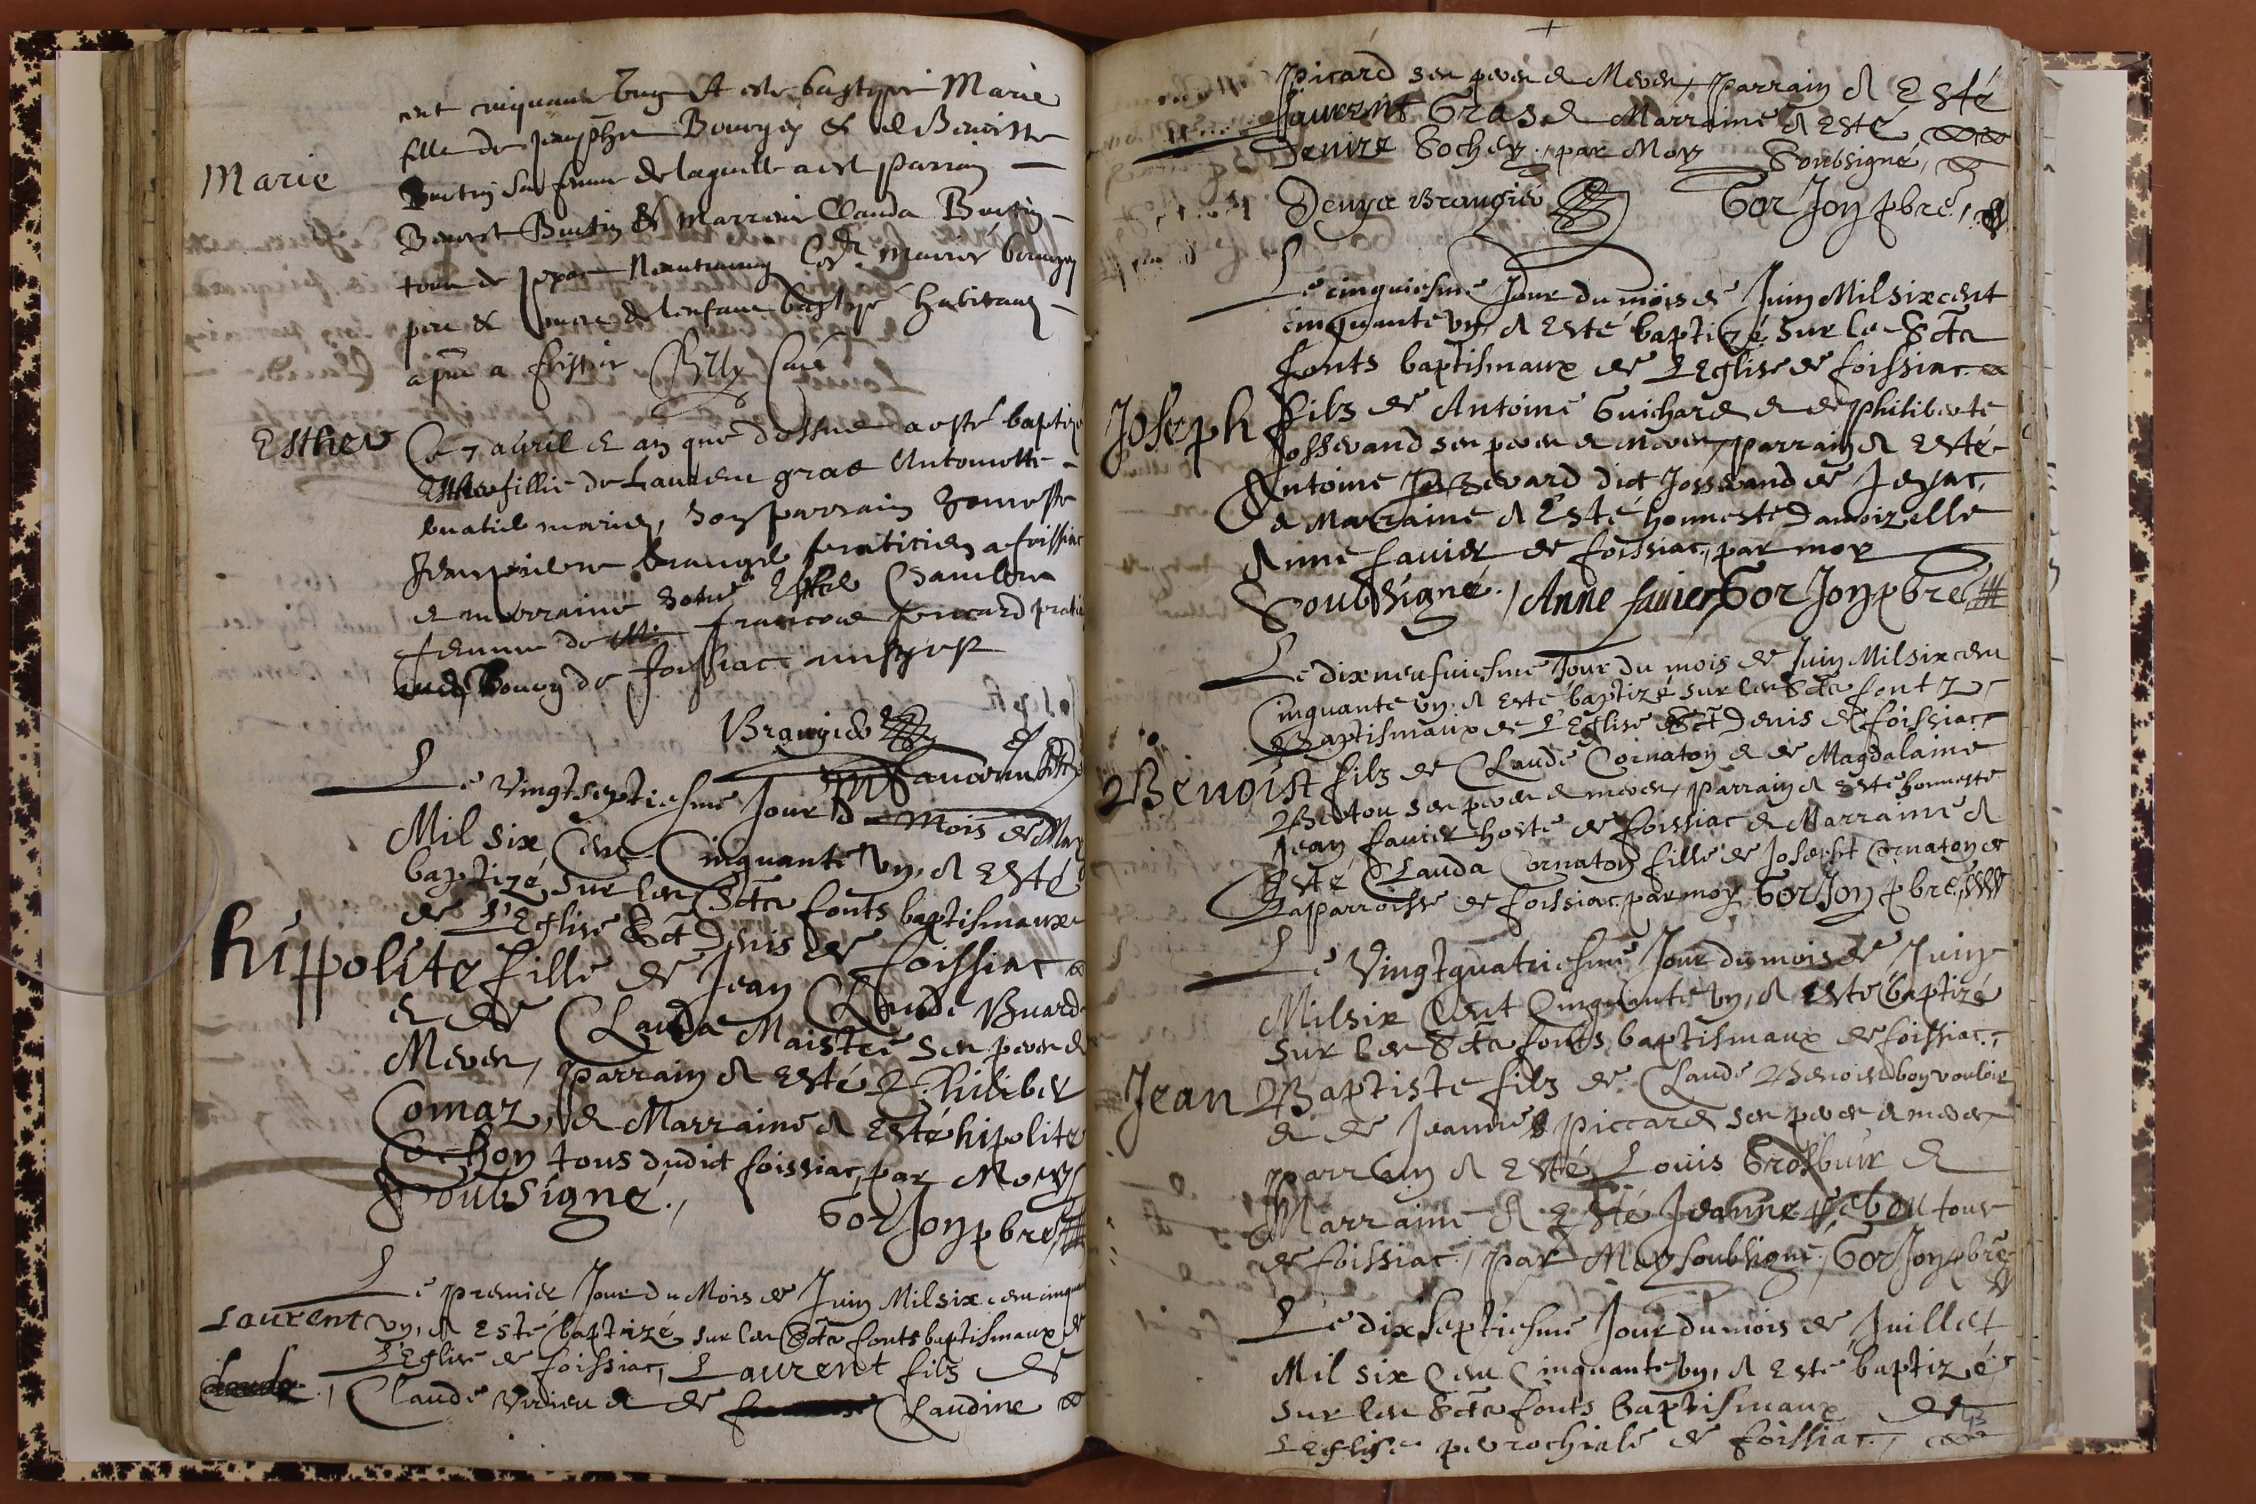 cent cinquante ung A este baptysé Marie
fille de Bourgey & de Benoiste
Marie
Buetin sa femme de laquelle a est parrain
Benoist Buetin & marreine Clauda Buetin
tous de
pere & mere de lenfant baptysé habitans
a foissia
Esther
Ce 7 avril & an que dessus a esté baptizé
Esther fillie de Laurent gras Antoinette
mariés, son parrain honneste
praticien a foissiac
& marraine
femme de françois pencard
bourg de foissiac
Brangier
Le Vingt septiesme Jour du Mois de May
Mil six Cent Cinquante Vn, A Esté
baptizé sur les Sctes fonts baptismaux
de L'Eglise Sct Denis de foissiac
hippolite fille de Jean Claude Buard
& de Clauda Maistre ses peres &
Meres, Parrain A Esté Philiber
Comaz, & Marraine A Esté hipolite
Cochon tous dudict foissiac, par Moy
Soubsigné.
Gorjon pbre
Le premier Jour du Mois de Juin Mil six cent cinquante
Laurent
vn, A Esté baptizé sur les Sctes fonts baptismaux de
L'Eglise de foissiac, Laurent filz de
Claude & de Claudine
Picard ses peres & Meres, Parrain A Esté
Laurent Gras & Marraine A Esté
Denize Sochey, par Moy Soubsigné,
Denys Brangier
Gorjon pbre,
Le cinquiesme Jour du mois de Juin Mil six cent
cinquante vn, A Esté baptizé sur les Sctes
fonts baptismaux de L'Eglise de foissiac
Joseph
filz de Antoine Guichard & de Philiberte
Josserand ses peres & meres, parrain A Esté
Antoine dict Josserand de Jayac,
& Marraine A Esté honneste Damoizelle
Anne favier de foissiac, par moy
Soubsigné, Anne favier, Gorjon pbre
Le dixneufviesme Jour du mois de Juin Mil six cent
Cinquante vn A Esté baptizé sur les Sctes fontz
Baptismaux de L'Eglise Sct Denis de foissiac
Benoist filz de Claude Cornaton & de Magdalaine
Berton ses peres & meres, parrain A Esté honneste
Jean favier hoste de foissiac & Marraine A
Esté Clauda Cornaton fille de Josepht Cornaton de
La parroisse de foissiac, par moy Gorjon pbre,
Le Vingt quatriesme Jour du mois de Juin
Mil six Cent Cinquante vn, A Esté baptizé
sur les Sctes fonts baptismaux de foissiac,
Jean Baptiste filz de Claude Benoist bonvouloir
& de Jeanne Piccard ses peres & meres
parrain A Esté Louis Grosbuir &
Marraine A Esté Jeanne tous
de foissiac, par Moy soubsigné, Gorjon pbre
Le dix septiesme Jour du mois de Juillet
Mil six Cent Cinquante vn, A Esté baptizé
sur les Sctes fonts Baptismaux de
L'Eglise perrochiale de foissiac,